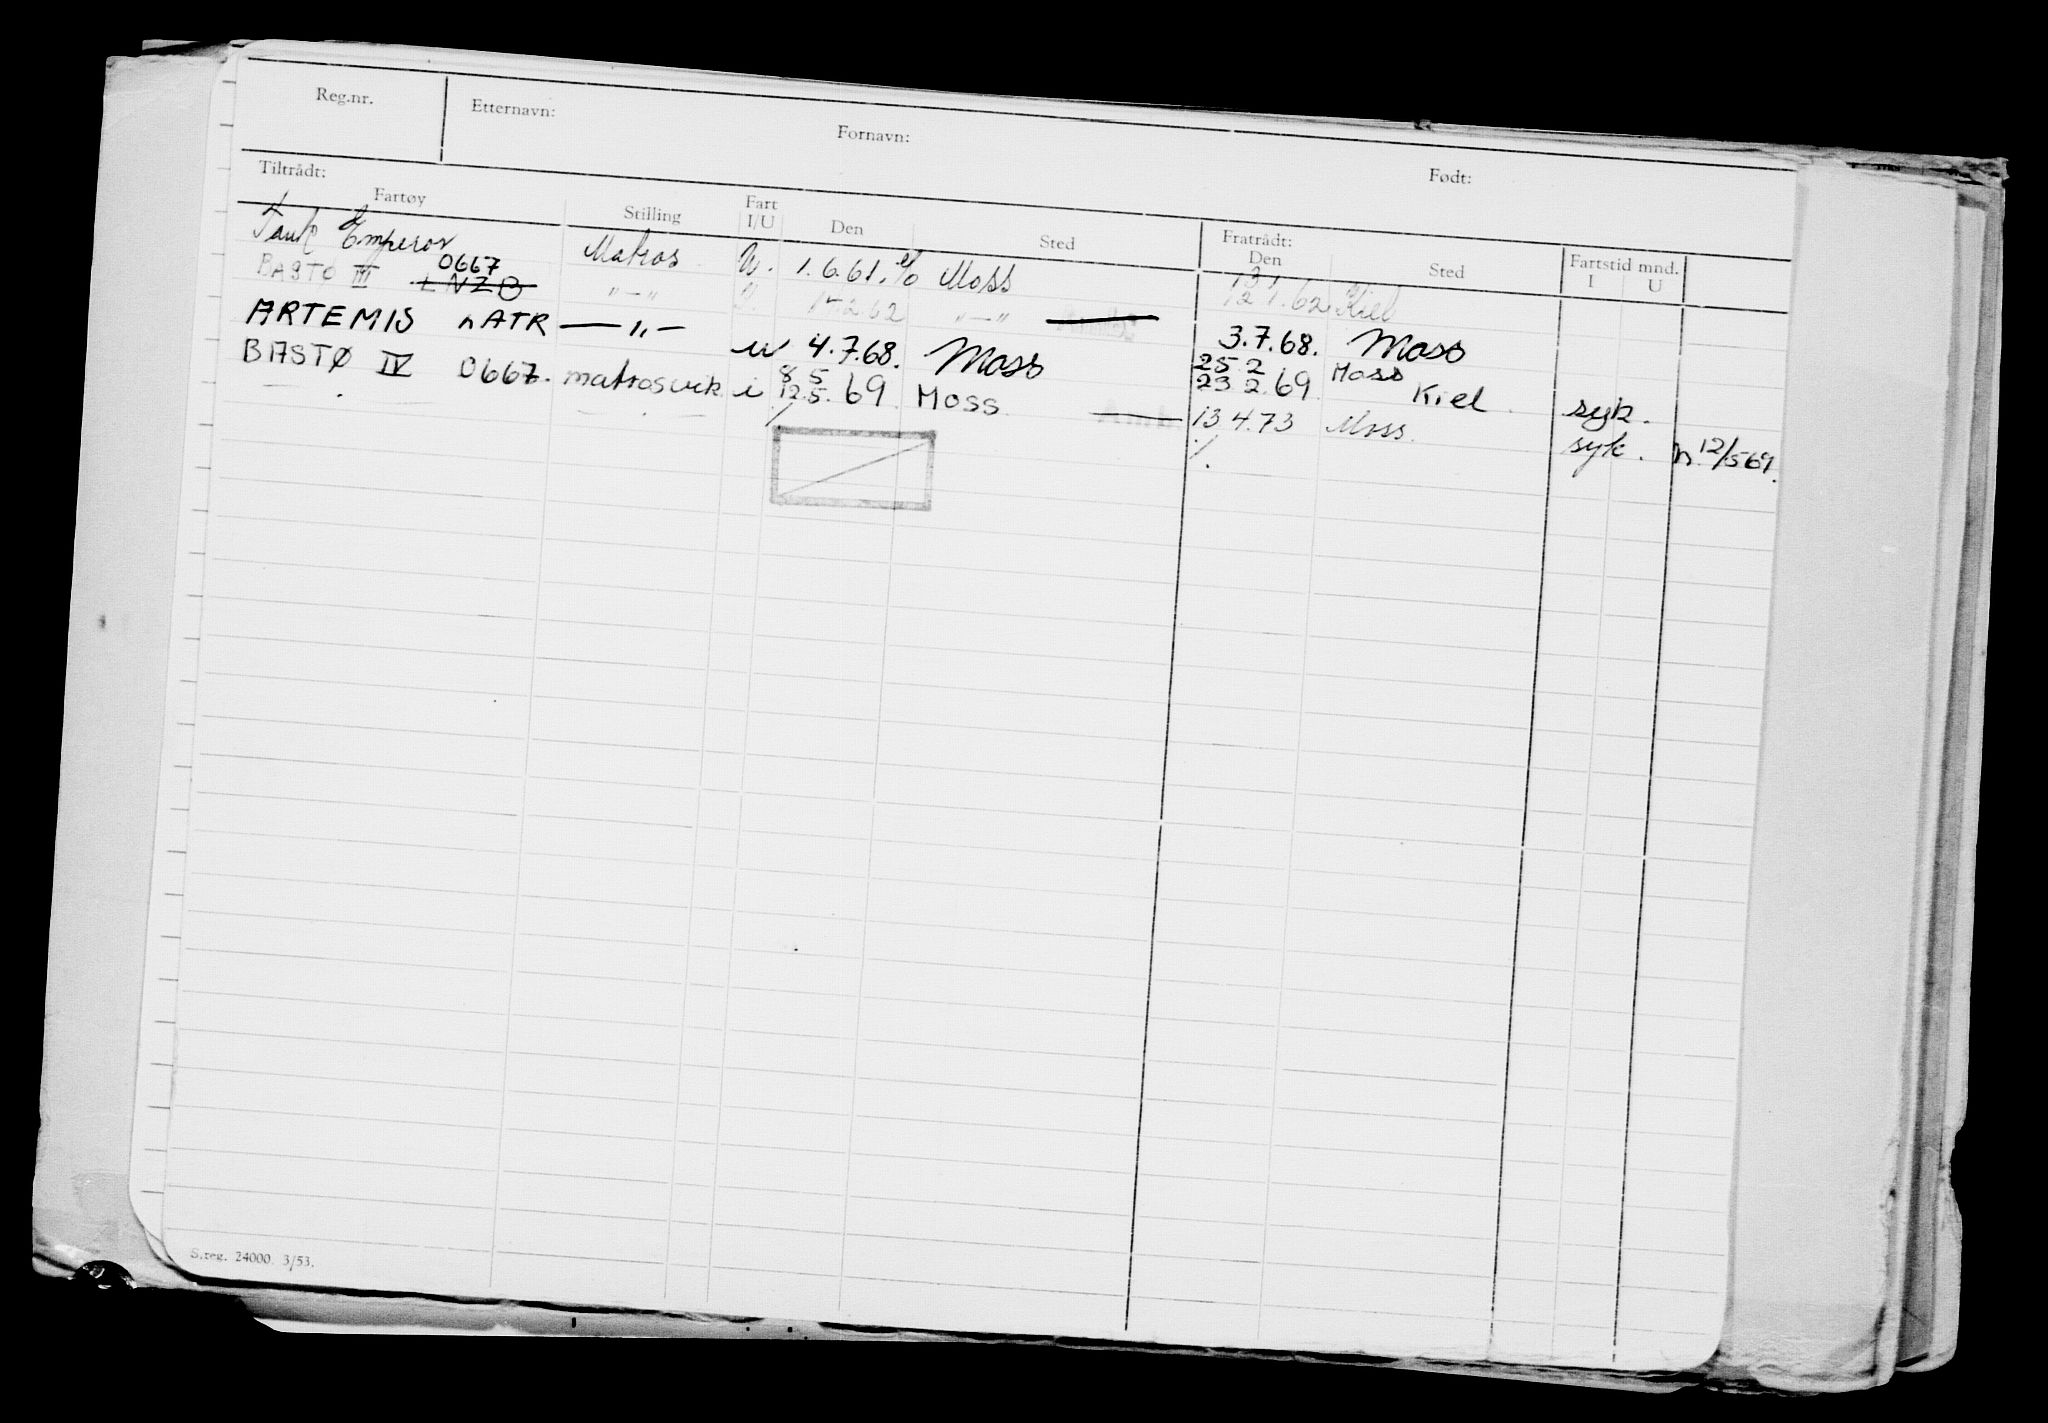 Reg.nr. Etternavn: Fornavn: Født:
Tiltrådt: Fratrådt:
Fartøy Stilling Fart I/U Den Sted Den Sted Fartstid mnd. I U
Tank Emperor Matros U. 1.6.61. e/o Moss 13 1 12 1.62 Kiel
BASTØ III 0667 LNZB "—" 15.2.62 "—" 3.7.68. Moss
ARTEMIS LATR —"— u 4.7.68. Moss 25 2 23.2.69 Moss Kiel syk.
BASTØ IV 0667. matrosvik i 8 5 12.5.69 Moss 13 4.73 Moss. syk. n. 12/5 69.
S.reg. 24000. 3/53.